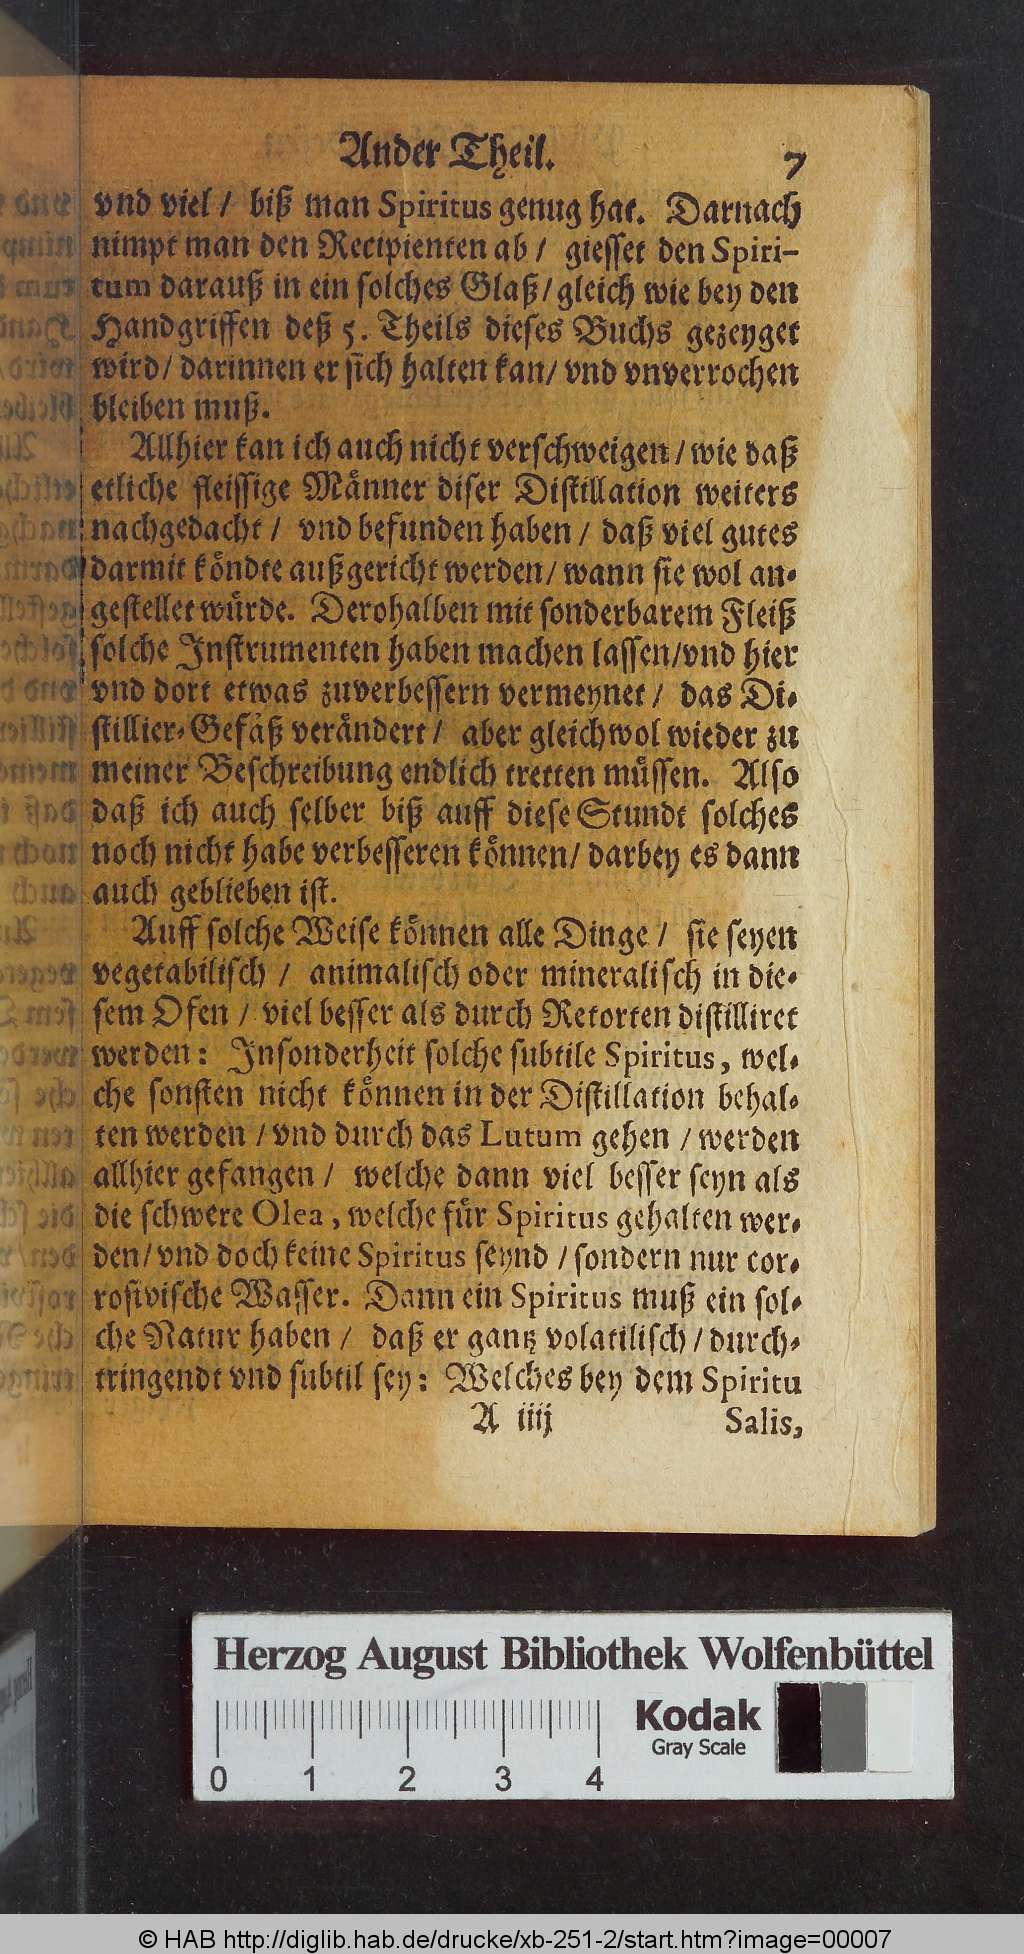 Ander Theil. 7
vnd viel / biß man Spiritus genug hat. Darnach
nimpt man den Recipienten ab / giesset den Spiri-
tum darauß in ein solches Glaß / gleich wie bey den
Handgriffen deß 5. Theils dieses Buchs gezeyget
wird / darinnen er sich halten kan / vnd vnverrochen
bleiben muß.
Allhier kan ich auch nicht verschweigen / wie daß
etliche fleissige Männer diser Distillation weiters
nachgedacht / vnd befunden haben / daß viel gutes
darmit köndte außgericht werden / wann sie wol an-
gestellet würde. Derohalben mit sonderbarem Fleiß
solche Instrumenten haben machen lassen / vnd hier
vnd dort etwas zuverbessern vermeynet / das Di-
stillier-Gefäß verändert / aber gleichwol wieder zu
meiner Beschreibung endlich tretten müssen. Also
daß ich auch selber biß auff diese Stundt solches
noch nicht habe verbesseren können / darbey es dann
auch geblieben ist.
Auff solche Weise können alle Dinge / sie seyen
vegetabilisch / animalisch oder mineralisch in die-
sem Ofen / viel besser als durch Retorten distilliret
werden: Insonderheit solche subtile Spiritus, wel-
che sonsten nicht können in der Distillation behal-
ten werden / vnd durch das Lutum gehen / werden
allhier gefangen / welche dann viel besser seyn als
die schwere Olea, welche für Spiritus gehalten wer-
den / vnd doch keine Spiritus seynd / sondern nur cor-
rosivische Wasser. Dann ein Spiritus muß ein sol-
che Natur haben / daß er gantz volatilisch / durch-
tringendt vnd subtil sey: Welches bey dem Spiritu
A iiij Salis,
Herzog August Bibliothek Wolfenbüttel
Kodak
Gray Scale
0 1 2 3 4
© HAB http://diglib.hab.de/drucke/xb-251-2/start.htm?image=00007